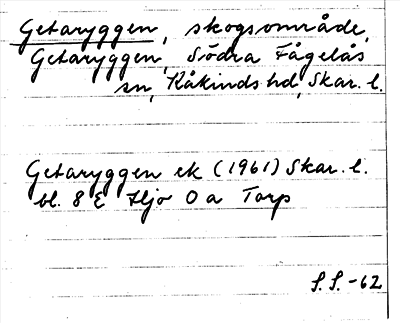 Getaryggen, skogsområde,
Getaryggen, Södra Fågelås
sn, Kåkinds hd, Skar. l.
Getaryggen ek (1961) Skar. l.
bl. 8 E Hjo 0 a Torp
S.S. -62